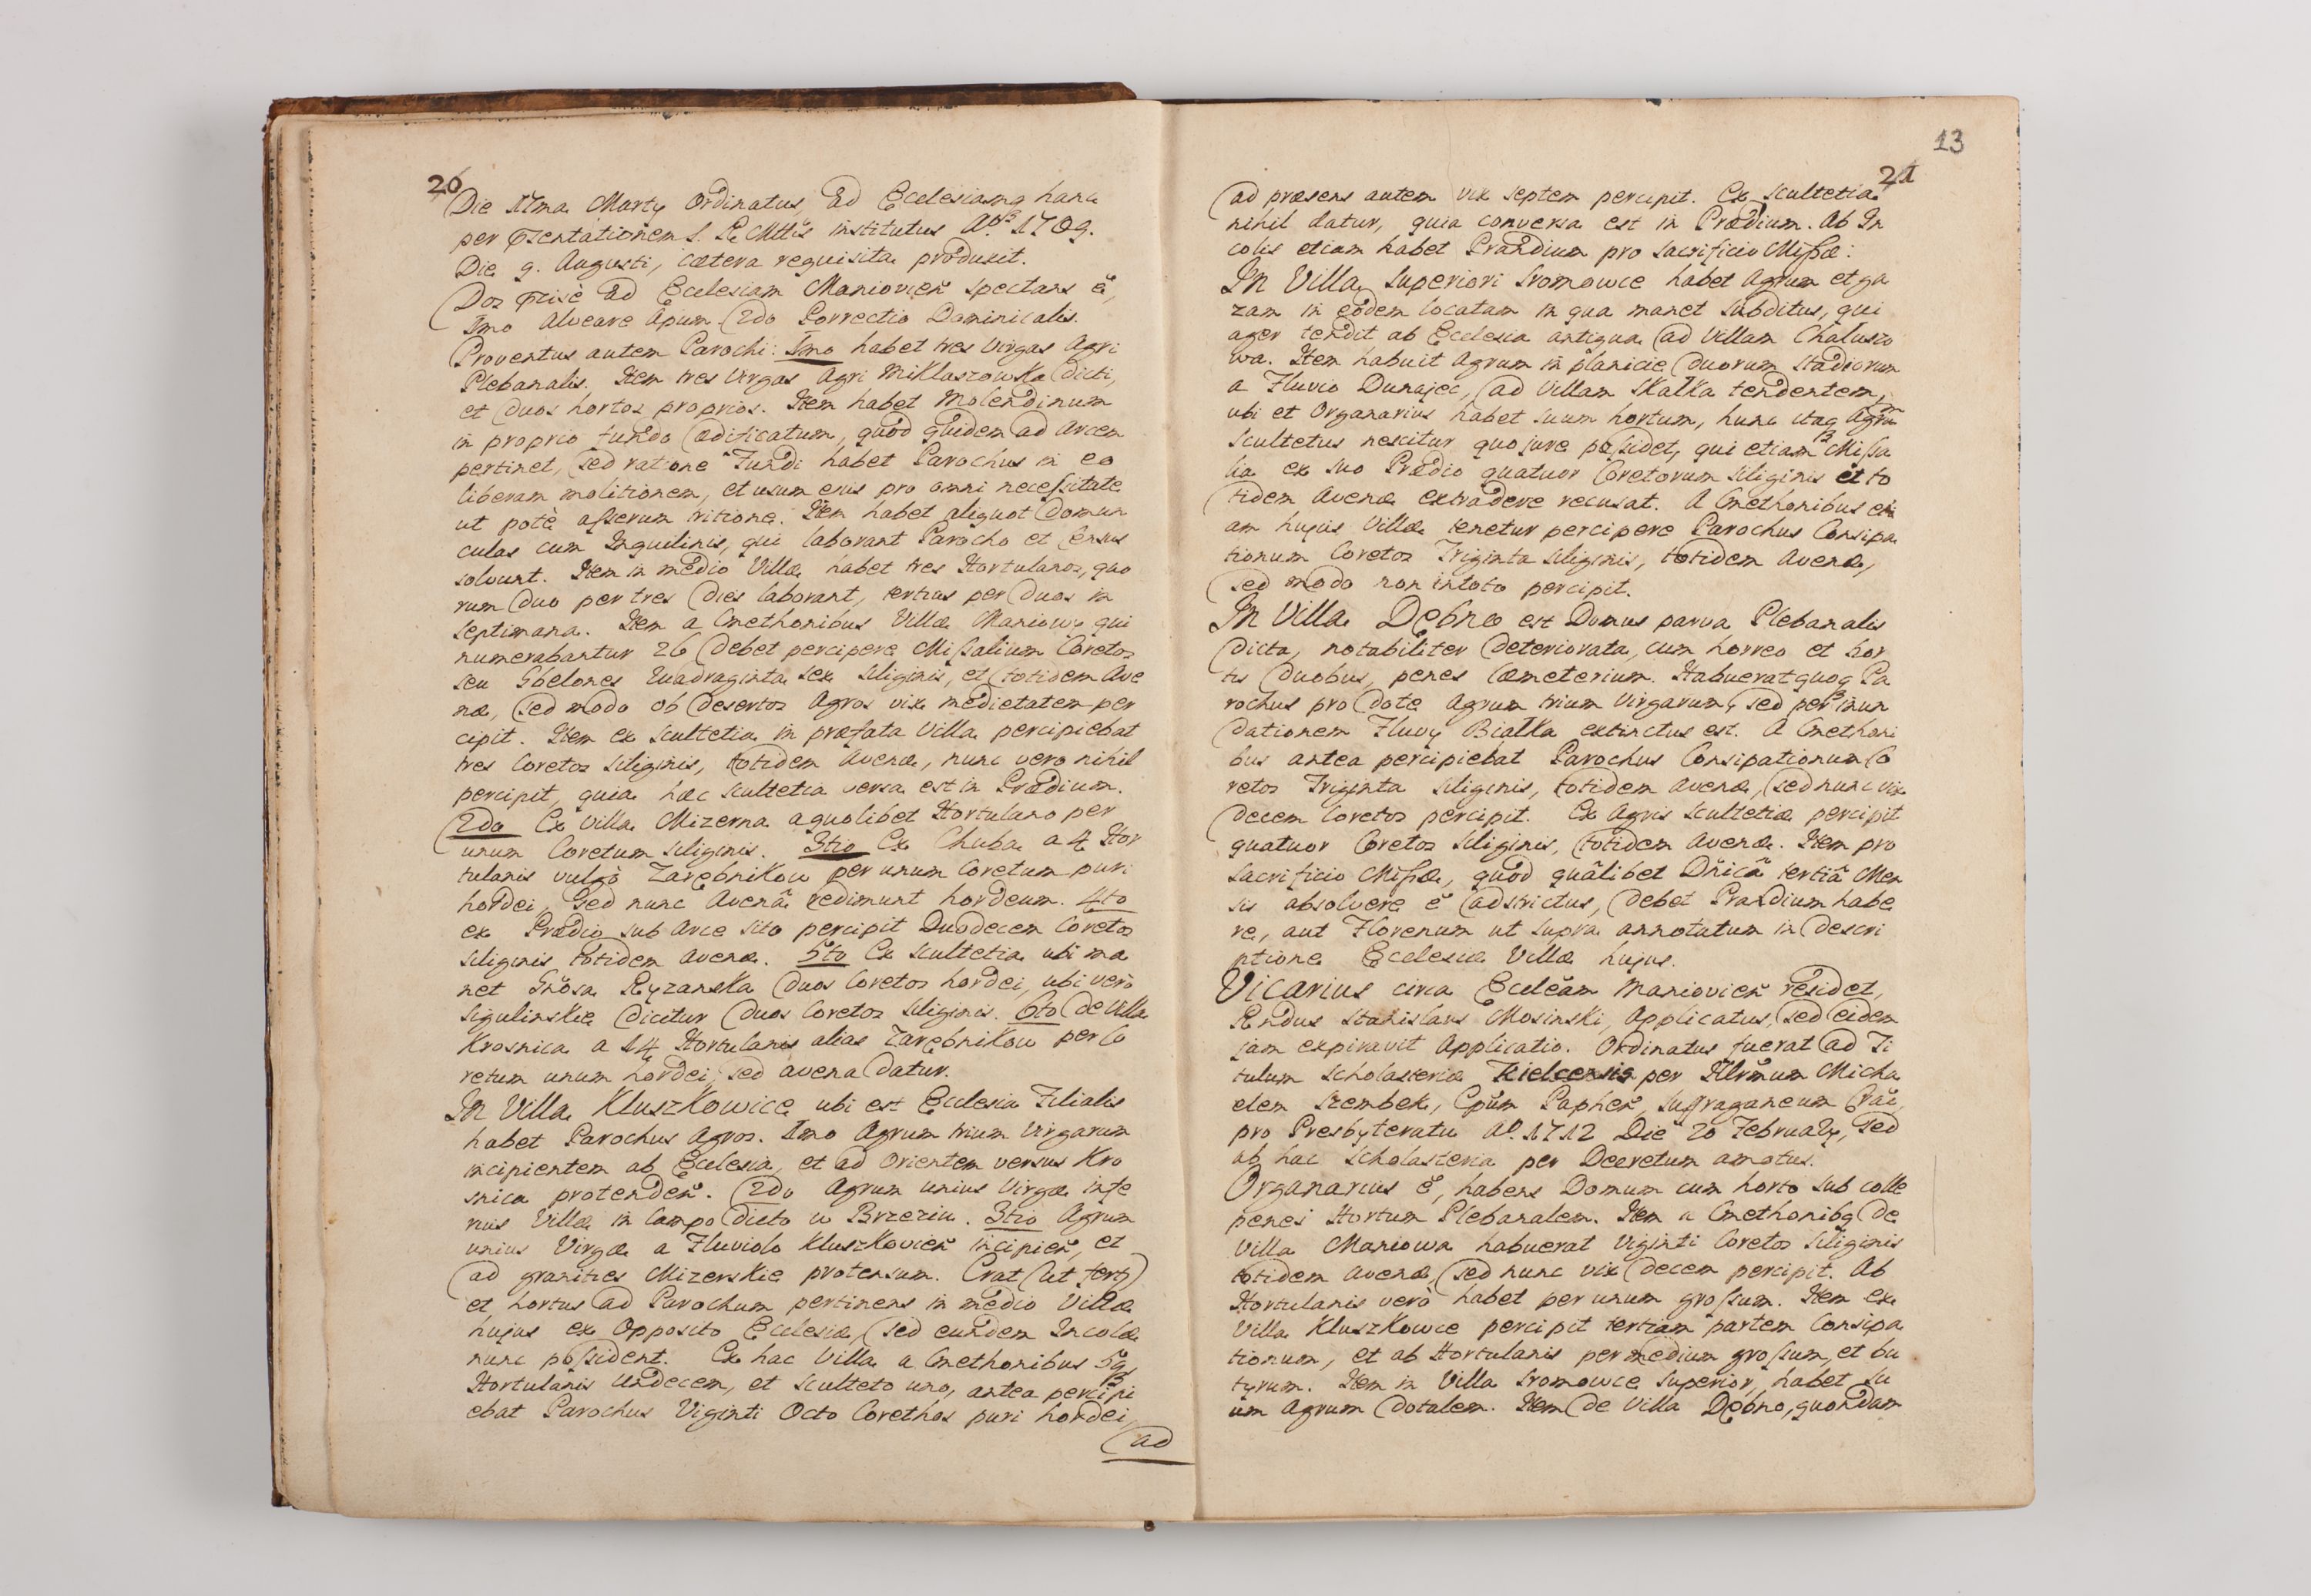 20
Die 17ma Martÿ Ordinatus, ad Ecclesiamq hanc
per Pñtationem S. R. Mttis institutus Aº 1709.
Die 9. Augusti, cætera requisita produxit.
Dos Pcisè ad Ecclesiam Maniovieñ spectans ẽ,
Imo Alveare Apum 2do Porrectio Dominicalis.
Proventus autem Parochi: Imo habet tres Virgas Agri
Plebanalis. Item tres Virgas Agri Miklaszowska dicti,
et duos hortos proprios. Item habet Molendinum
in proprio fundo ædificatum, quod quidem ad Arcem
pertinet, sed ratione Fundi habet Parochus in eo
liberam molitionem, et usum eius pro omni necessitate
ut potè asserum tritione. Item habet aliquot domun
culas cum Inquilinis, qui laborant Parocho et Census
solvunt. Item in medio Villæ habet tres Hortulanos, quo
rum duo per tres dies laborant, tertius per duos in
septimana. Item a Cmethonibus Villæ Maniowÿ qui
numerabantur 26 debet percipere Missalium Coretos
seu Gbelones Quadraginta sex siliginis, et totidem Ave
næ, sed modo ob desertos Agros vix medietatem per
cipit. Item ex Scultetia in præfata Villa percipiebat
tres Coretos siliginis, totidem Avenæ, nunc vero nihil
percipit, quia hæc scultetia versa est in Prædium.
2do Ex Villa Mizerna a quolibet Hortulano per
unum Coretum siliginis. 3tio Ex Chuba a 4 Hor
tulanis vulgò Zarębnikow per unum Coretum puri
hordei, sed nunc Avenã redimunt hordeum. 4to
ex Prædio sub Arce sito percipit Duodecem Coretos
siliginis totidem avenæ. 5to Ex scultetia ubi ma
net Gñosa Ryzanska duos Coretos hordei, ubi verò
Sigulinskie dicitur duos Coretos siliginis. 6to de Villa
Krosnica a 14 Hortulanis alias Zarębnikow per Co
retum unum hordei, sed avena datur.
In Villa Kluszkowice ubi est Ecclesia Filialis
habet Parochus Agros. Imo Agrum trium Virgarum
incipientem ab Ecclesia, et ad Orientem versus Kro
snica protendeñ. 2do Agrum unius Virgæ infe
rius Villæ in Campo dicto w Brzeziu. 3tio Agrum
unius Virgæ a Fluviolo Kluszkovieñ incipieñ, et
ad granities Mizerskie protensum. Erat (ut fert)
et hortus ad Parochum pertinens in medio Villæ
hujus ex Opposito Ecclesiæ, sed eundem Incolæ
nunc possident. Ex hac Villa a Cmethonibus 59
Hortulanis Undecem, et Sculteto uno, antea percipi
ebat Parochus Viginti Octo Corethos puri hordei,
ad
13
21
ad præsens autem vix septem percipit. Ex scultetia
nihil datur, quia conversa est in Prædium. Ab In
colis etiam habet Prandium pro Sacrificio Missæ:
In Villa Superiori Sromowce habet Agrum et ga
zam in eodem locatam in qua manet subditus, qui
ager tendit ab Ecclesia antiqua ad Villam Chaluszo
wa. Item habuit Agrum in planicie duorum Stadiorum
a Fluvio Dunajec, ad Villam Skalka tendentem,
ubi et Organarius habet suum hortum, hunc itaq Agrũ
Scultetus nescitur quo jure possidet, qui etiam Missa
lia ex suo Prædio quatuor Coretorum siliginis et to
tidem Avenæ extradere recusat. A Cmethonibus eti
am hujus Villæ tenetur percipere Parochus Consipa
tionum Coretos Triginta siliginis, totidem Avenæ,
sed modo non intoto percipit.
In Villa Dębno est Domus parva Plebanalis
dicta, notabiliter deteriorata, cum horreo et hor
tis duobus, penes Cæmeterium. Habuerat quoq Pa
rochus pro dote Agrum trium Virgarum, sed per inun
dationem Fluvÿ Bialka extinctus est. A Cmethoni
bus antea percipiebat Parochus Consipationum Co
retos Triginta siliginis, totidem avenæ, sed nunc vix
decem Coretos percipit. Ex Agris Scultetiæ percipit
quatuor Coretos siliginis, totidem Avenæ. Item pro
Sacrificio Missæ, quod quâlibet Dñicâ tertiâ Men
sis absolvere ẽ adstrictus, debet Prandium habe
re, aut Florenum ut supra annotatum in descri
ptione Ecclesiæ Villæ hujus.
Vicarius circa Eccleãm Manioвieñ residet,
Rñdus Stanislaus Mosinski, Applicatus, sed eidem
jam expiravit Applicatio. Ordinatus fuerat ad Ti
tulum Scholasteriæ Kielcensis per Illrmum Micha
elem Szembek, Epũm Papheñ, Suffraganeum Crac̃,
pro Presbyteratu Aº. 1712 Die 20 Februarÿ, sed
ab hac Scholasteria per Decretum amotus.
Organarius ẽ, habens Domum cum horto sub colle
penes Hortum Plebanalem. Item a Cmethonibq de
Villa Maniowa habuerat Viginti Coretos Siliginis
totidem avenæ, sed nunc vix decem percipit. Ab
Hortulanis verò habet per unum grossum. Item ex
Villa Kluszkowce percipit tertiam partem Consipa
tionum, et ab Hortulanis per medium grossum, et bu
tyrum. Item in Villa Sromowce Superior, habet su
um Agrum dotalem. Item de Villa Dębno, quondam